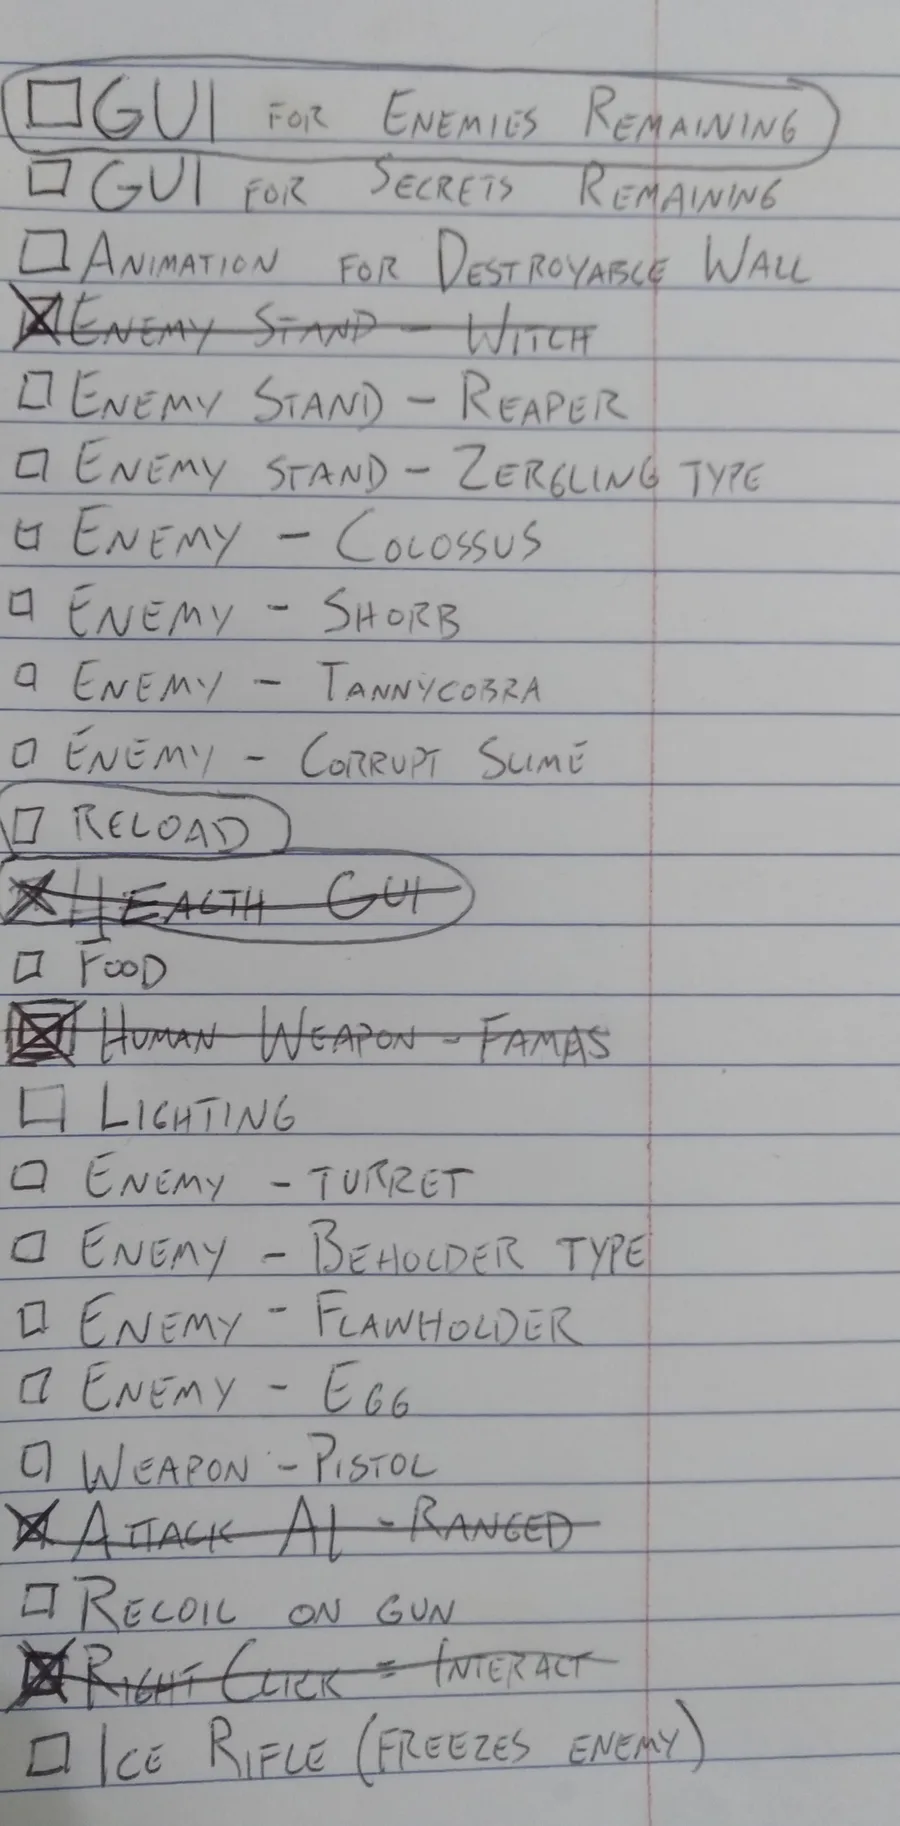 GUI FOR ENEMIES REMAINING
GUI FOR SECRETS REMAINING
ANIMATION FOR DESTROYABLE WALL
ENEMY STAND - WITCH
ENEMY STAND - REAPER
ENEMY STAND - ZERGLING TYPE
ENEMY - COLOSSUS
ENEMY - SHORB
ENEMY - TANNYCOBRA
ENEMY - CORRUPT SLIME
RELOAD
HEALTH GUI
FOOD
HUMAN WEAPON - FAMAS
LIGHTING
ENEMY - TURRET
ENEMY - BEHOLDER TYPE
ENEMY - FLAWHOLDER
ENEMY - EGG
WEAPON - PISTOL
ATTACK AI - RANGED
RECOIL ON GUN
RIGHT CLICK = INTERACT
ICE RIFLE (FREEZES ENEMY)